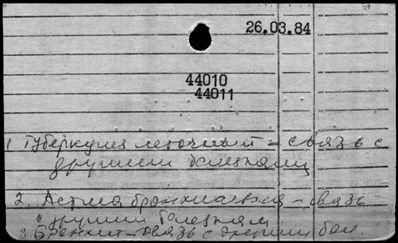 26.03.84
44010
44011
1. Туберкулез легочный – связь с
другими болезнями
2. Астма бронхиальная – связь
с другими болезнями
3. Бронхит – связь с другими бол.